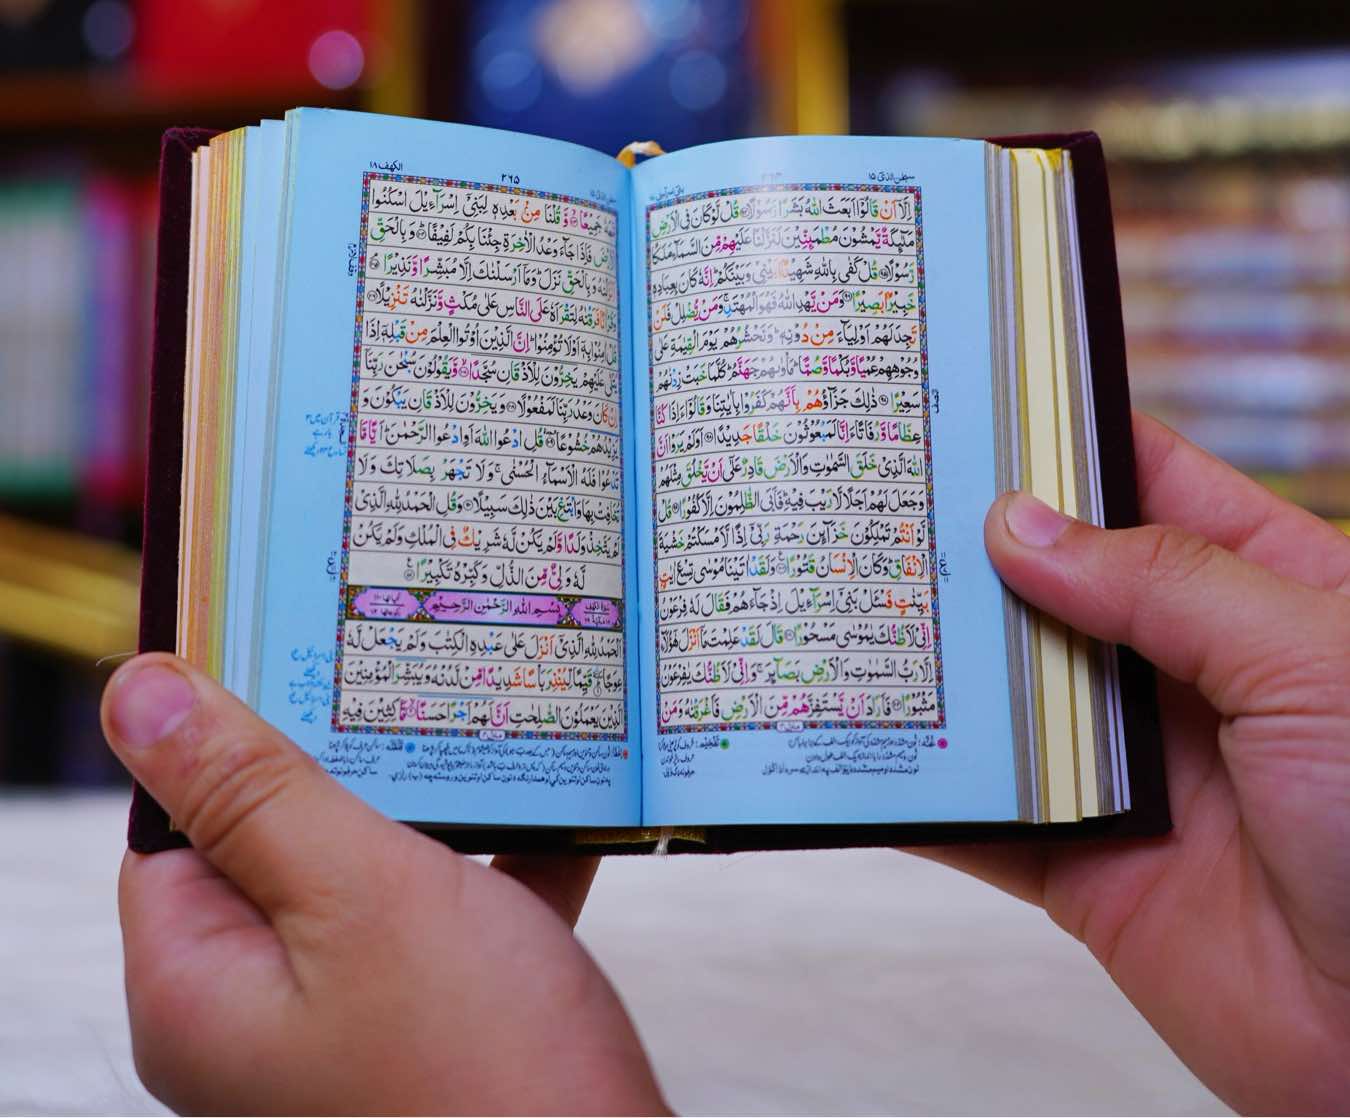 سبحٰن الذیٓ ۱۵
اِلَّاۤ اَنْ قَالُوْۤا اَبَعَثَ اللّٰهُ بَشَرًا رَّسُوْلًا قُلْ لَّوْ كَانَ فِی الْاَرْضِ
مَلٰٓىِٕكَةٌ یَّمْشُوْنَ مُطْمَىِٕنِّیْنَ لَنَزَّلْنَا عَلَیْهِمْ مِّنَ السَّمَآءِ مَلَكًا
رَّسُوْلًا قُلْ كَفٰی بِاللّٰهِ شَهِیْدًۢا بَیْنِیْ وَبَیْنَكُمْ اِنَّهٗ كَانَ بِعِبَادِهٖ
خَبِیْرًۢا بَصِیْرًا وَمَنْ یَّهْدِ اللّٰهُ فَهُوَ الْمُهْتَدِ وَمَنْ یُّضْلِلْ فَلَنْ
تَجِدَ لَهُمْ اَوْلِیَآءَ مِنْ دُوْنِهٖ وَنَحْشُرُهُمْ یَوْمَ الْقِیٰمَةِ عَلٰی
وُجُوْهِهِمْ عُمْیًا وَّبُكْمًا وَّصُمًّا مَاْوٰىهُمْ جَهَنَّمُ كُلَّمَا خَبَتْ زِدْنٰهُمْ
سَعِیْرًا ذٰلِكَ جَزَآؤُهُمْ بِاَنَّهُمْ كَفَرُوْا بِاٰیٰتِنَا وَقَالُوْۤا ءَاِذَا كُنَّا
عِظَامًا وَّرُفَاتًا ءَاِنَّا لَمَبْعُوْثُوْنَ خَلْقًا جَدِیْدًا اَوَلَمْ یَرَوْا اَنَّ
اللّٰهَ الَّذِیْ خَلَقَ السَّمٰوٰتِ وَالْاَرْضَ قَادِرٌ عَلٰۤی اَنْ یَّخْلُقَ مِثْلَهُمْ
وَجَعَلَ لَهُمْ اَجَلًا لَّا رَیْبَ فِیْهِ فَاَبَی الظّٰلِمُوْنَ اِلَّا كُفُوْرًا قُلْ
لَّوْ اَنْتُمْ تَمْلِكُوْنَ خَزَآىِٕنَ رَحْمَةِ رَبِّیْۤ اِذًا لَّاَمْسَكْتُمْ خَشْیَةَ
الْاِنْفَاقِ وَكَانَ الْاِنْسَانُ قَتُوْرًا وَلَقَدْ اٰتَیْنَا مُوْسٰی تِسْعَ اٰیٰتٍۭ
بَیِّنٰتٍ فَسْـَٔلْ بَنِیْۤ اِسْرَآءِیْلَ اِذْ جَآءَهُمْ فَقَالَ لَهٗ فِرْعَوْنُ
اِنِّیْ لَاَظُنُّكَ یٰمُوْسٰی مَسْحُوْرًا قَالَ لَقَدْ عَلِمْتَ مَاۤ اَنْزَلَ هٰۤؤُلَآءِ
اِلَّا رَبُّ السَّمٰوٰتِ وَالْاَرْضِ بَصَآىِٕرَ وَاِنِّیْ لَاَظُنُّكَ یٰفِرْعَوْنُ
مَثْبُوْرًا فَاَرَادَ اَنْ یَّسْتَفِزَّهُمْ مِّنَ الْاَرْضِ فَاَغْرَقْنٰهُ وَمَنْ
۲۶۵
الکهف ۱۸
مَّعَهٗ جَمِیْعًا وَّقُلْنَا مِنْۢ بَعْدِهٖ لِبَنِیْۤ اِسْرَآءِیْلَ اسْكُنُوا
الْاَرْضَ فَاِذَا جَآءَ وَعْدُ الْاٰخِرَةِ جِئْنَا بِكُمْ لَفِیْفًا وَبِالْحَقِّ
اَنْزَلْنٰهُ وَبِالْحَقِّ نَزَلَ وَمَاۤ اَرْسَلْنٰكَ اِلَّا مُبَشِّرًا وَّنَذِیْرًا
وَقُرْاٰنًا فَرَقْنٰهُ لِتَقْرَاَهٗ عَلَی النَّاسِ عَلٰی مُكْثٍ وَّنَزَّلْنٰهُ تَنْزِیْلًا
قُلْ اٰمِنُوْا بِهٖۤ اَوْ لَا تُؤْمِنُوْا اِنَّ الَّذِیْنَ اُوْتُوا الْعِلْمَ مِنْ قَبْلِهٖۤ اِذَا
یُتْلٰی عَلَیْهِمْ یَخِرُّوْنَ لِلْاَذْقَانِ سُجَّدًا وَّیَقُوْلُوْنَ سُبْحٰنَ رَبِّنَاۤ
اِنْ كَانَ وَعْدُ رَبِّنَا لَمَفْعُوْلًا وَیَخِرُّوْنَ لِلْاَذْقَانِ یَبْكُوْنَ وَ
یَزِیْدُهُمْ خُشُوْعًا قُلِ ادْعُوا اللّٰهَ اَوِ ادْعُوا الرَّحْمٰنَ اَیًّا مَّا
تَدْعُوْا فَلَهُ الْاَسْمَآءُ الْحُسْنٰی وَلَا تَجْهَرْ بِصَلَاتِكَ وَلَا
تُخَافِتْ بِهَا وَابْتَغِ بَیْنَ ذٰلِكَ سَبِیْلًا وَقُلِ الْحَمْدُ لِلّٰهِ الَّذِیْ
لَمْ یَتَّخِذْ وَلَدًا وَّلَمْ یَكُنْ لَّهٗ شَرِیْكٌ فِی الْمُلْكِ وَلَمْ یَكُنْ
لَّهٗ وَلِیٌّ مِّنَ الذُّلِّ وَكَبِّرْهُ تَكْبِیْرًا
بِسْمِ اللّٰهِ الرَّحْمٰنِ الرَّحِیْمِ
اَلْحَمْدُ لِلّٰهِ الَّذِیْۤ اَنْزَلَ عَلٰی عَبْدِهِ الْكِتٰبَ وَلَمْ یَجْعَلْ لَّهٗ
عِوَجًا قَیِّمًا لِّیُنْذِرَ بَاْسًا شَدِیْدًا مِّنْ لَّدُنْهُ وَیُبَشِّرَ الْمُؤْمِنِیْنَ
الَّذِیْنَ یَعْمَلُوْنَ الصّٰلِحٰتِ اَنَّ لَهُمْ اَجْرًا حَسَنًا مَّاكِثِیْنَ فِیْهِ